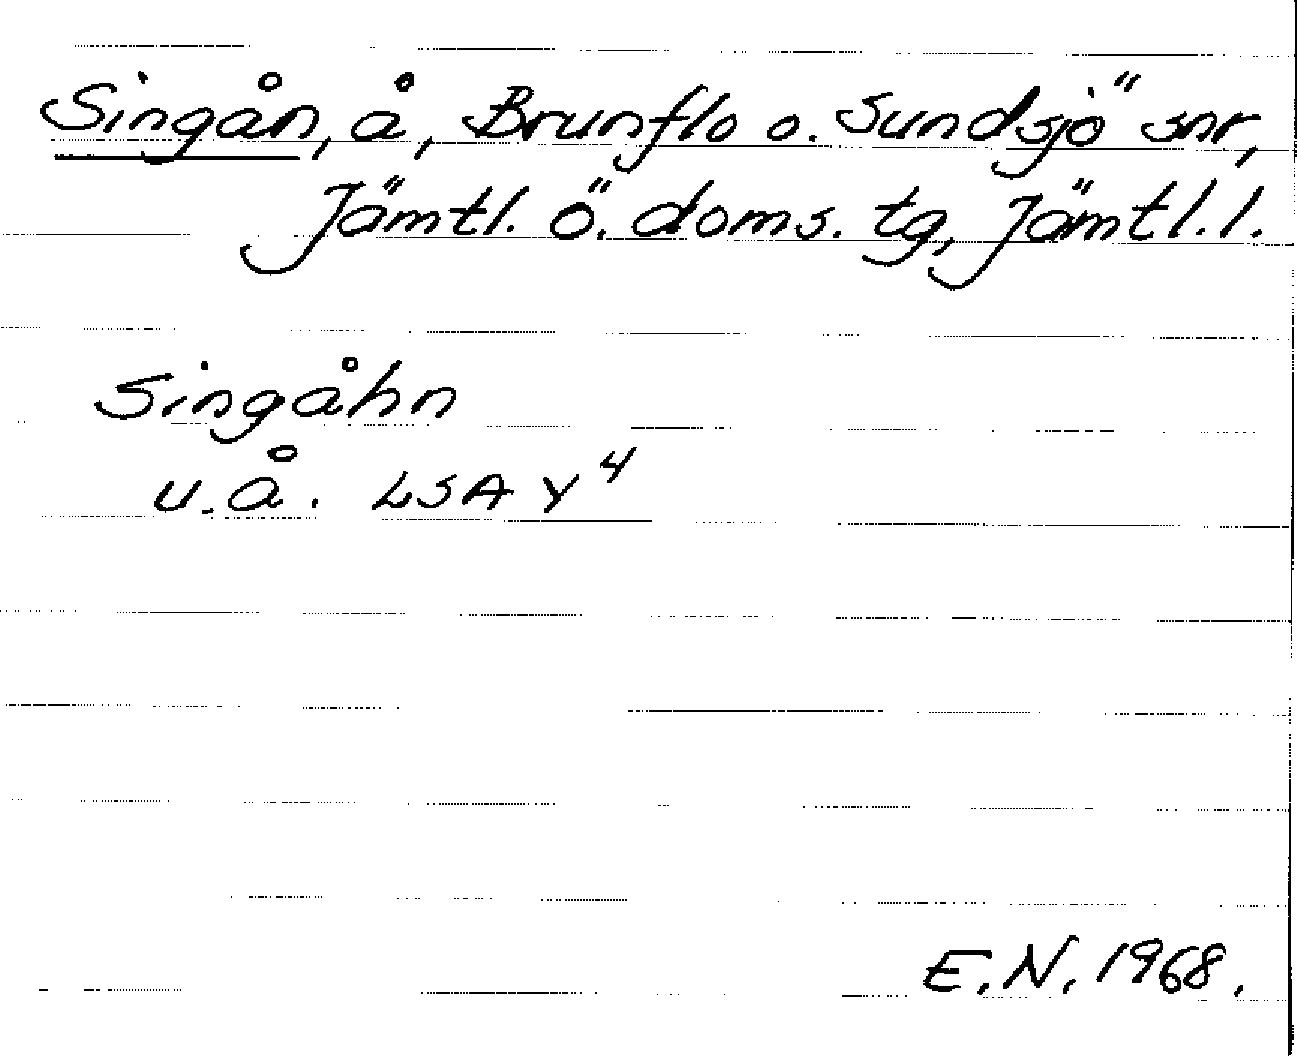 Singån, å, Brunflo o. Sundsjö snr,
Jämtl. ö. doms. tg, Jämtl. l.
Singåhn
u.å. LSA Y⁴
E.N. 1968.